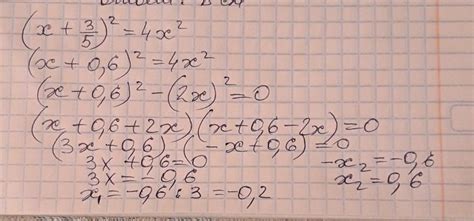 (x + 3/5)² = 4x²
(x + 0,6)² = 4x²
(x + 0,6)² - (2x)² = 0
(x + 0,6 + 2x) (x + 0,6 - 2x) = 0
(3x + 0,6) (-x + 0,6) = 0
3x + 0,6 = 0
3x = -0,6
x₁ = -0,6 : 3 = -0,2
-x₂ = -0,6
x₂ = 0,6